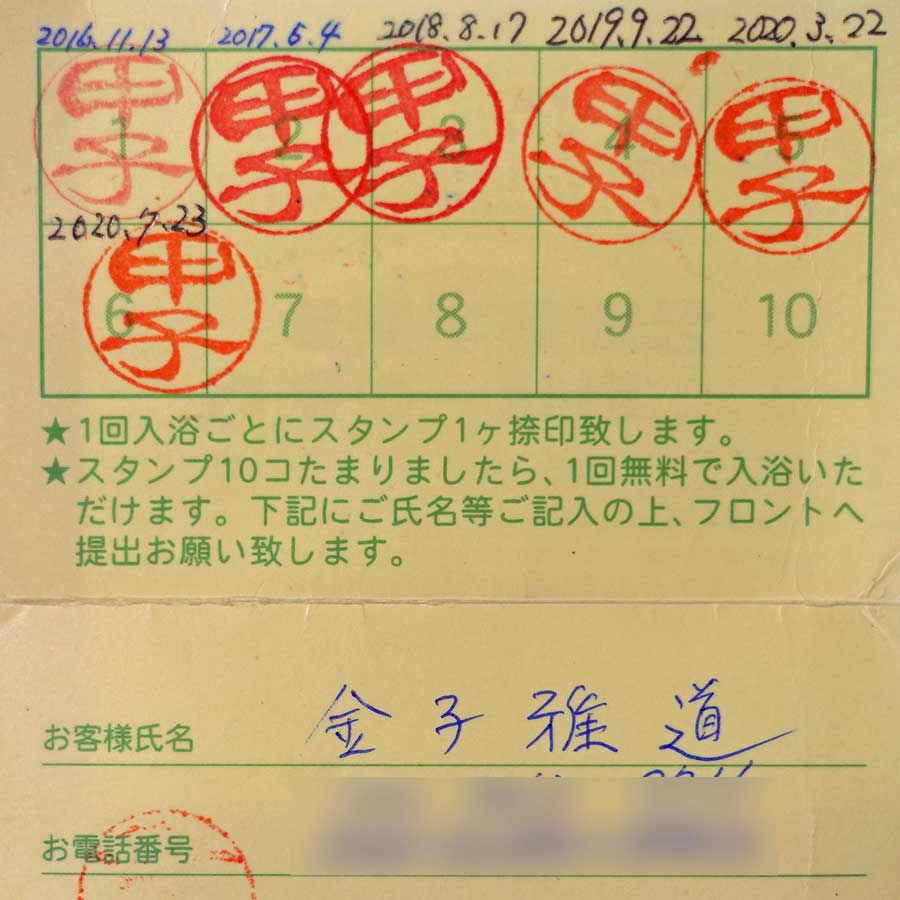 2016.11.13 2017.5.4 2018.8.17 2019.9.22 2020.3.22
甲子 甲子 甲子 甲子 甲子
1 2 3 4 5
2020.7.23
甲子
6 7 8 9 10
★1回入浴ごとにスタンプ1ヶ捺印致します。
★スタンプ10コたまりましたら、1回無料で入浴いた
だけます。下記にご氏名等ご記入の上、フロントへ
提出お願い致します。
お客様氏名 金子雅道
お電話番号